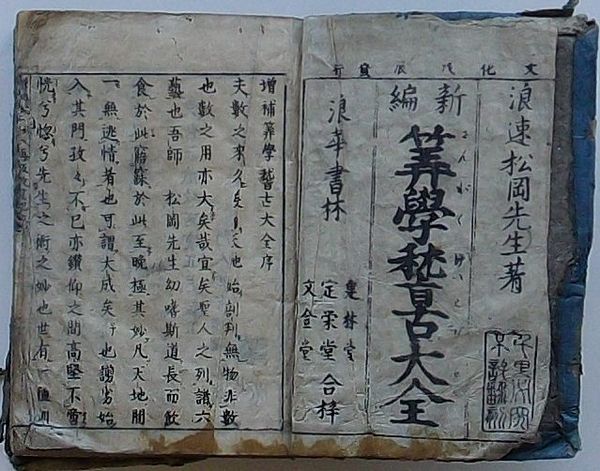 文化戊辰發行
浪速松岡先生著
新編
筭學稽古大全
さんがくけいこ
浪華書林
林堂
定榮堂 合梓
文金堂
增補筭學稽古大全序
夫數之來久矣天也始剖判無物非數
也數之用亦大矣哉宜矣聖人之列諸六
藝也吾師 松岡先生幼嗜斯道長而飲
食於此寤寐於此至晚極其妙凡天地間
一無迯情者也可謂大成矣也謭劣始
入其門孜々不已亦鑽仰之間高堅不啻
恍兮惚兮先生之術之妙也世有一種